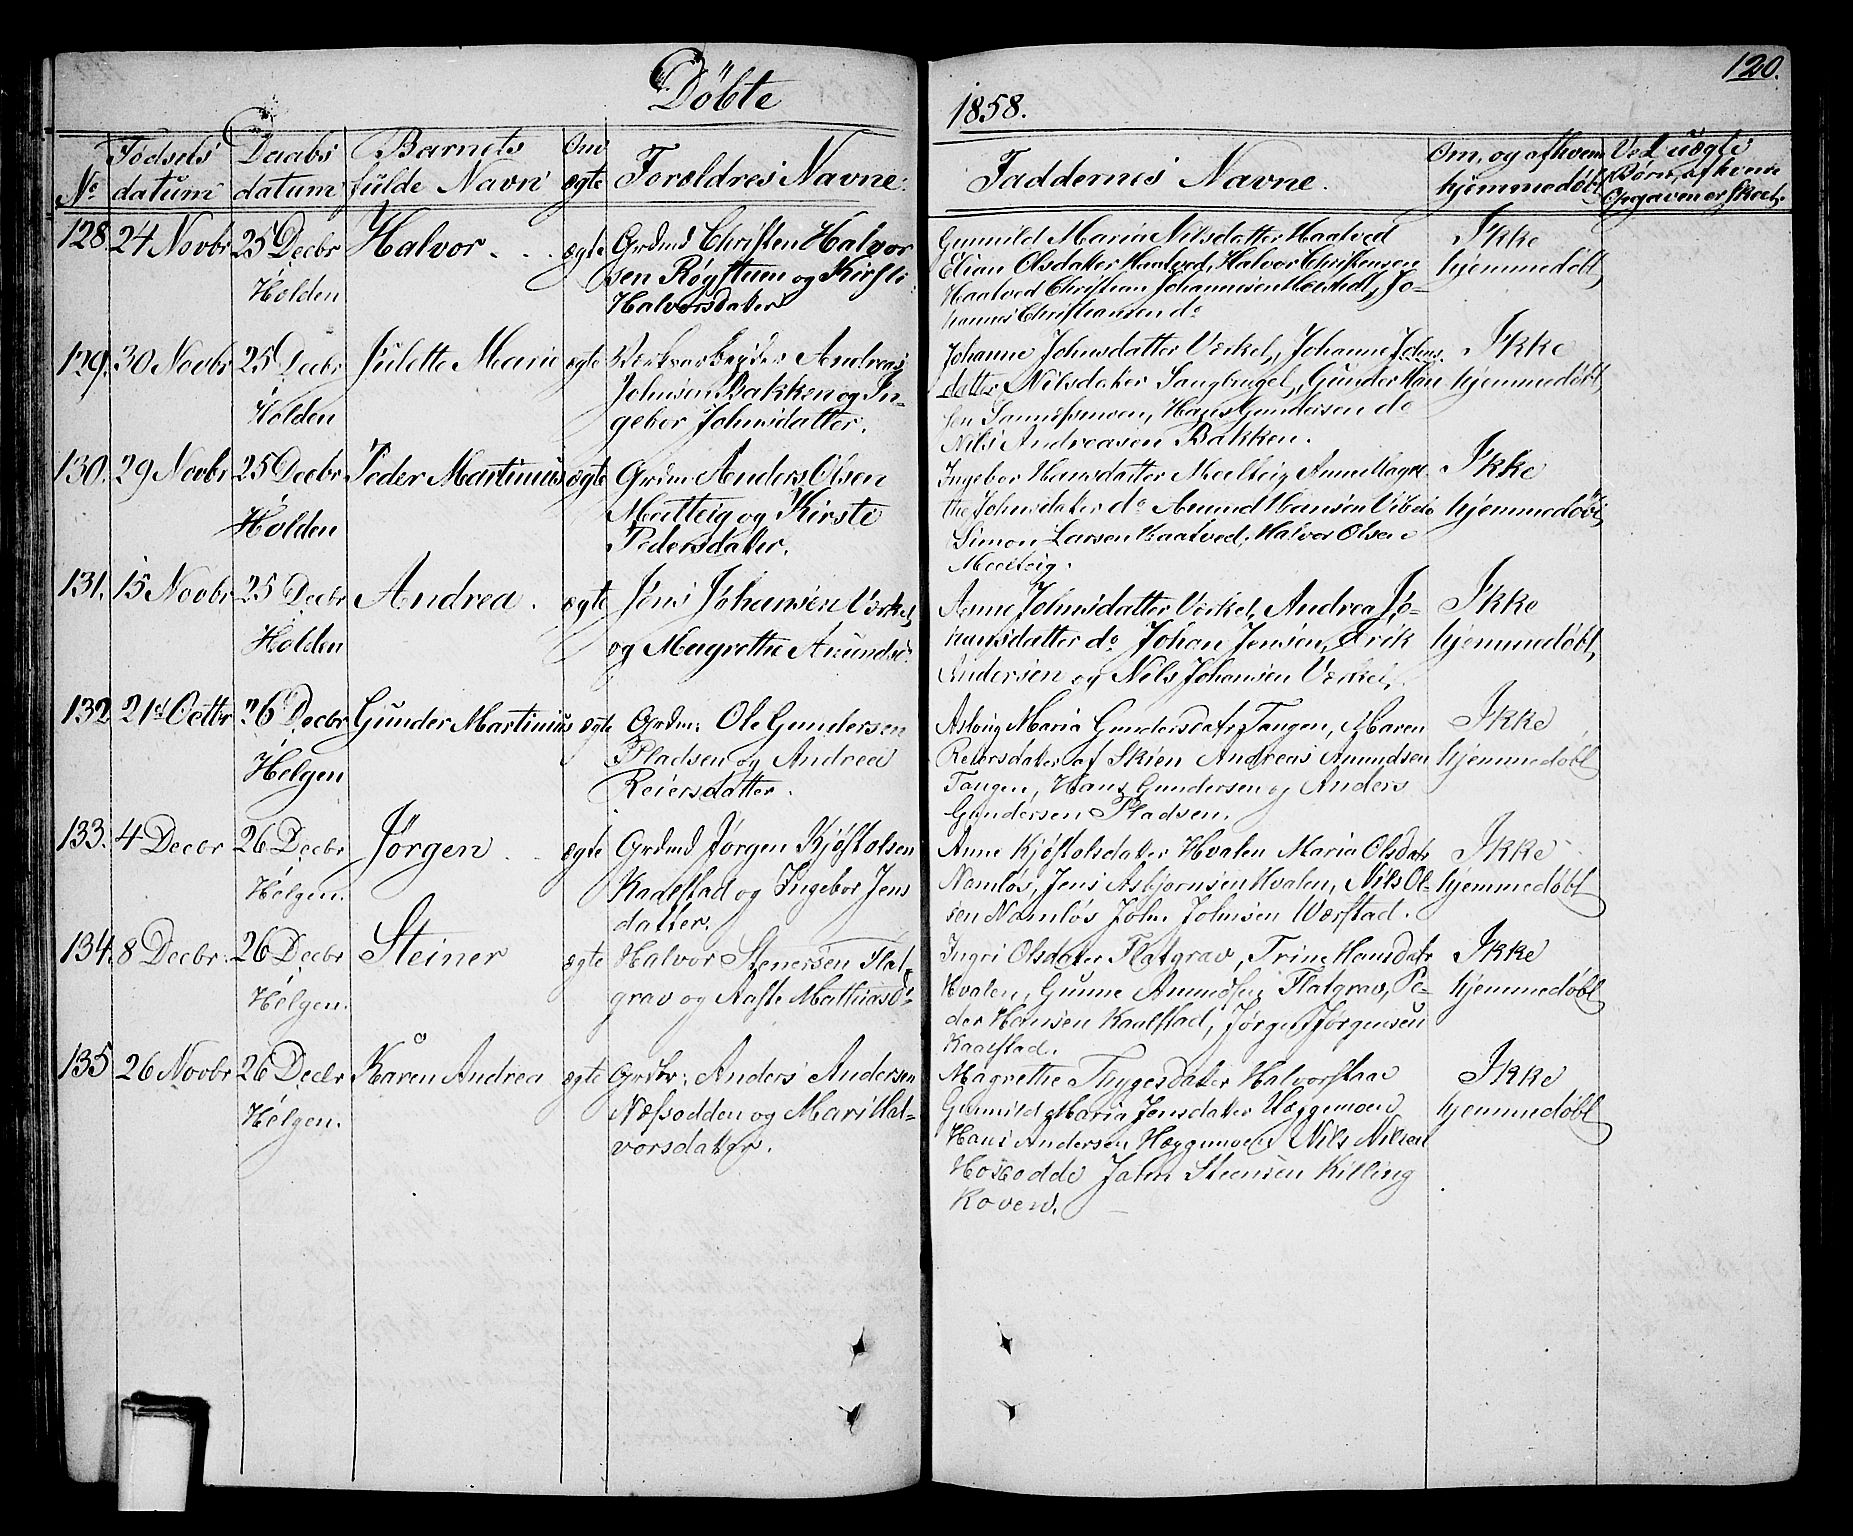 Döbte
1858.
120.
No
Fødsels datum
Daabs datum
Barnets fulde Navn
Om ægte
Forældres Navne.
Faddernes Navne.
Om, og af hvem hjemmedøbt
Ved uægte Børn, af hvem Opgaven er skeet.
128 24 Novbr 25 Decbr Halvor . . . ægte Grdmd Christen Halvor
Holden sen Røgttum og Kirsti
Halvorsdatter
Gunnild Maria Nilsdatter Haatved
Elian Olsdatter Haatved, Halvor Christensen
Haatved Christian Johannesen Jo-
hannes Christiansen do
Ikke
hjemmedøbt,
129. 30 Novbr 25 Decbr Julette Marie ægte Værksarbeider Andreas
Holden Johnsen Bakken og In-
gebor Johnsdatter.
Johanne Johnsdatter Værket, Johanne Johns
datter Nilsdatter Gunder Han
sen Hans Gundersen do
Nils Andreasen Bakken.
Ikke
hjemmedøbt,
130. 29 Novbr 25 Decbr Peder Martinius ægte Grdm Anders Olsen
Holden Meelteig og Kirsti
Pedersdatter.
Ingebor Hansdatter Meelteig Anne Magre
the Johnsdatter do Amund Hansen Vibeto
Simon Larsen Haatved, Halvor Olsen
Meelteig.
Ikke
hjemmedøbt,
131. 15 Novbr 25 Decbr Andrea . ægte Jens Johansen Værket,
Holden og Magrethe Amundsd.
Anne Johnsdatter Værket, Andrea Jo-
hansdatter do Johan Jensen, Erik
Andersen og Nils Johansen Værket,
Ikke
hjemmedøbt,
132 21st Octbr 26 Decbr Gunder Martinius ægte Grdm: Ole Gundersen
Helgen Pladsen og Andrea
Reiersdatter.
Aslaug Maria Gundersdatr Tangen, Maren
Reiersdatter af Skien Andreas Amundsen
Tangen, Hans Gundersen og Anders
Gundersen Pladsen.
Ikke
hjemmedøbt
133. 4 Decbr 26 Decbr Jørgen . . ægte Grdmd Jørgen Kjøstolsen
Helgen. Kaalstad og Ingebor Jens
datter.
Anne Kjøstolsdatter Hvalen Maria Olsdatr
Namløs, Jens Asbjørnsen Hvalen, Nils Ol-
sen Namløs John Johnsen Værstad.
Ikke
hjemmedøbt
134. 8 Decbr. 26 Decbr Steiner ægte Halvor Stenersen Flat-
Helgen. grav og Aaste MathiasDr
Ingri Olsdatter Flatgrav, Trine Hansdatr
Hvalen, Gunne Amundsen Flatgrav, Pe-
der Hansen Kaalstad, Jørgen Jørgensen
Kaalstad.
Ikke
hjemmedøbt
135 26 Novbr 26 Decbr Karen Andrea ægte Grdbr: Anders Andersen
Helgen. Næsodden og Mari Hal-
vorsdatter.
Magrethe Thygesdatter Halvorstaae
Gunnild Maria Jensdatter Hæggemoen
Hans Andersen Hæggemoen Nils Nilsen
Hosodde John Steensen Killing
koven.
Ikke
hjemmedøbt